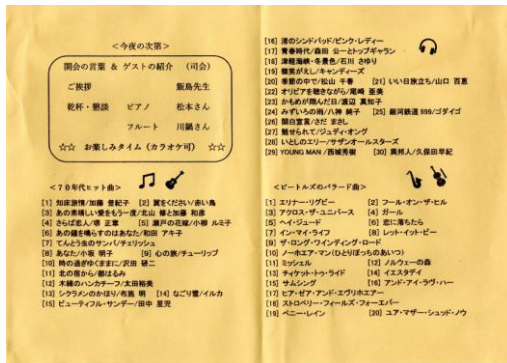 ＜今夜の次第＞
開会の言葉 & ゲストの紹介 （司会）
ご挨拶 飯島先生
乾杯・懇談 ピアノ 松本さん
フルート 川鍋さん
☆☆ お楽しみタイム（カラオケ可） ☆☆
＜７０年代ヒット曲＞
[1] 知床旅情/加藤 登紀子 [2] 翼をください/赤い鳥
[3] あの素晴しい愛をもう一度/北山 修と加藤 和彦
[4] さらば恋人/堺 正章 [5] 瀬戸の花嫁/小柳 ルミ子
[6] あの鐘を鳴らすのはあなた/和田 アキ子
[7] てんとう虫のサンバ/チェリッシュ
[8] あなた/小坂 明子 [9] 心の旅/チューリップ
[10] 時の過ぎゆくままに/沢田 研二
[11] 北の宿から/都はるみ
[12] 木綿のハンカチーフ/太田裕美
[13] シクラメンのかほり/布施 明 [14] なごり雪/イルカ
[15] ビューティフル・サンデー/田中 星児
[16] 渚のシンドバッド/ピンク・レディー
[17] 青春時代/森田 公一とトップギャラン
[18] 津軽海峡・冬景色/石川 さゆり
[19] 微笑がえし/キャンディーズ
[20] 季節の中で/松山 千春 [21] いい日旅立ち/山口 百恵
[22] オリビアを聴きながら/尾崎 亜美
[23] かもめが翔んだ日/渡辺 真知子
[24] みずいろの雨/八神 純子 [25] 銀河鉄道 999/ゴダイゴ
[26] 関白宣言/さだ まさし
[27] 魅せられて/ジュディ・オング
[28] いとしのエリー/サザンオールスターズ
[29] YOUNG MAN /西城秀樹 [30] 異邦人/久保田早紀
＜ビートルズのバラード曲＞
[1] エリナー・リグビー [2] フール・オン・ザ・ヒル
[3] アクロス・ザ・ユニバース [4] ガール
[5] ヘイ・ジュード [6] 恋に落ちたら
[7] イン・マイ・ライフ [8] レット・イット・ビー
[9] ザ・ロング・ワインディング・ロード
[10] ノーホエア・マン(ひとりぼっちのあいつ)
[11] ミッシェル [12] ノルウェーの森
[13] チィケット・トゥ・ライド [14] イエスタデイ
[15] サムシング [16] アンド・アイ・ラヴ・ハー
[17] ヒア・ゼア・アンド・エヴリホエアー
[18] ストロベリー・フィールズ・フォーエバー
[19] ペニー・レイン [20] ユア・マザー・シュッド・ノウ